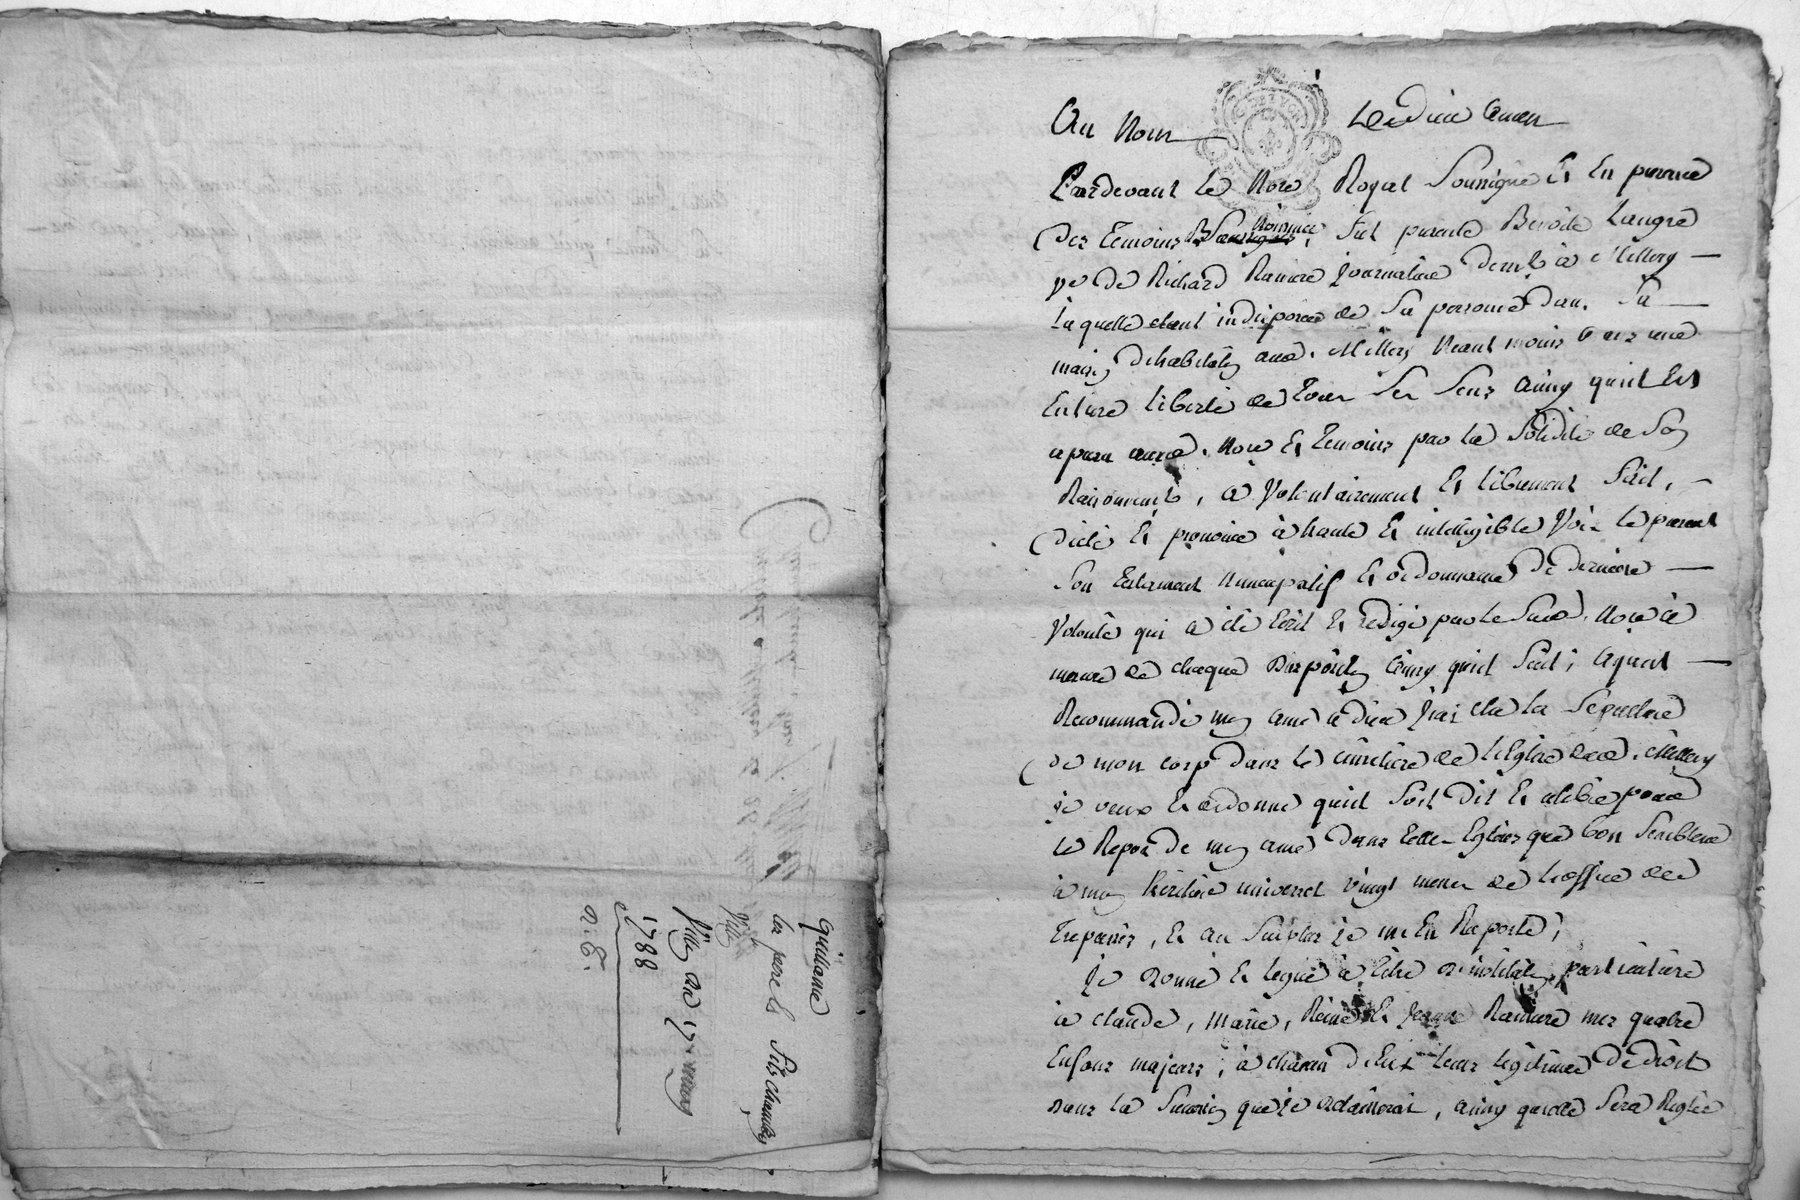 Quittance
les pere & fils chambry
Ville
du 17 may
1788
n. E.
Au Nom De Dieu Amen
Pardevant Le Nore Royal Soussigné Et En presence
Des Temoins Bas Nommés, fut presente Benoite Laugre
ve De Richard Raniere Journaliere demte à Millery
Laquelle etant indisposée de Sa personne dans Sa
maison dhabitaon aud. Millery Neantmoins Avec une
Entiere liberté de tous Ses Sens Ainsy quil Est
aparu audt. Nore Et Temoins par La Solidité de Son
Raisonnemt, a Volontairement Et librement fait,
Dicté Et prononcé à haute Et intelligible Voix le present
Son Testament Nuncupatif Et ordonnance De derniere
Volonté qui a été Ecrit Et redigé par le Susd. Nore à
mesure de chaque Dispoôn Ainsy quil Suit; Ayant
Recommandé mon ame à dieu J'ai élu la Sepulture
de mon corp Dans le cimetiere de l'Eglise dud. Millery
je veux Et ordonne quil Soit Dit Et célébré pour
le Repos De mon ame Dans telle Eglise que bon Semblera
à mon héritier universel vingt messes de l'office des
Trepassés, Et Au Surplus je m'En Raporte;
Je Donne Et legue à titre d'institution particuliere
à claude, Marie, Reine Et Jeanne Raniere mes quatre
Enfans majeurs, à chacun d'Eux leur legitime De droit
dans la Succession que je delaisserai, Ainsy quelle Sera Reglée